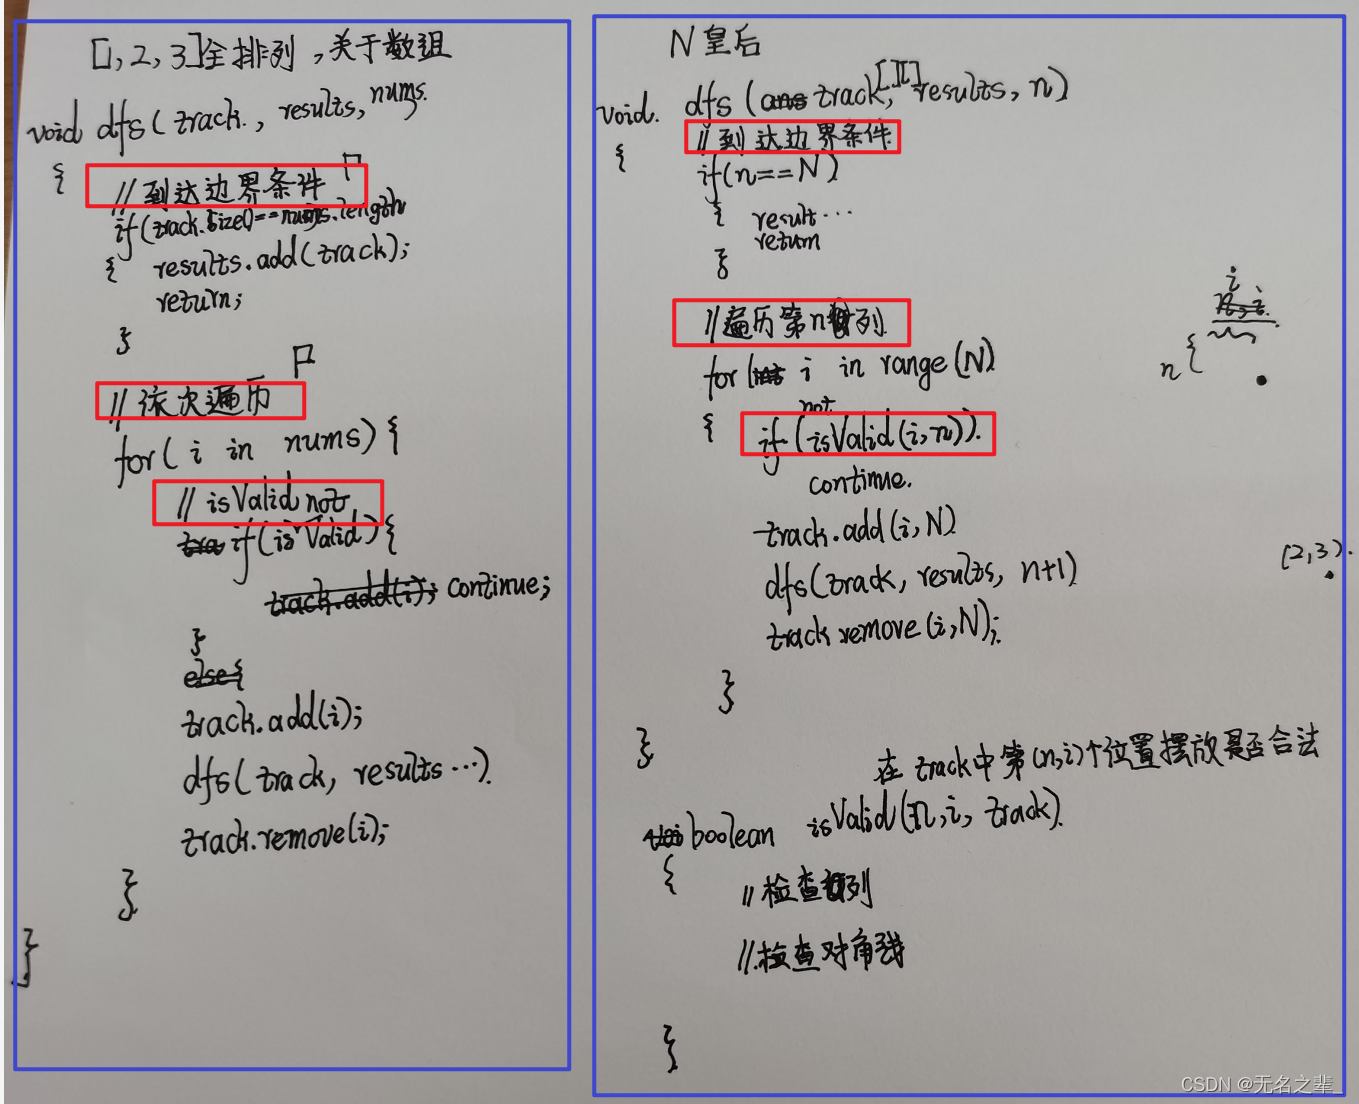 [1,2,3]全排列,关于数组
void dfs(track., results, nums.
{
//到达边界条件
if(track.size()==nums.length
{ results.add(track);
return;
}
//依次遍历
for(i in nums){
// isValid not
tra if(isValid){
track.add(i); continue;
}
else{
track.add(i);
dfs(track, results…)
track.remove(i);
}
}
N皇后
void. dfs(ans track,[][] results, n)
{ //到达边界条件
if(n==N)
{ result…
return
}
//遍历第n列
for(int i in range(N)
{ not
if(isValid(i,n)).
continue.
track.add(i,N)
dfs(track, results, n+1)
track remove(i,N);
}
}
i
n{
(2,3).
在track中第(n,i)个位置摆放是否合法
boolean isValid(n,i, track)
{
//检查列
//检查对角线
}
CSDN @无名之辈_